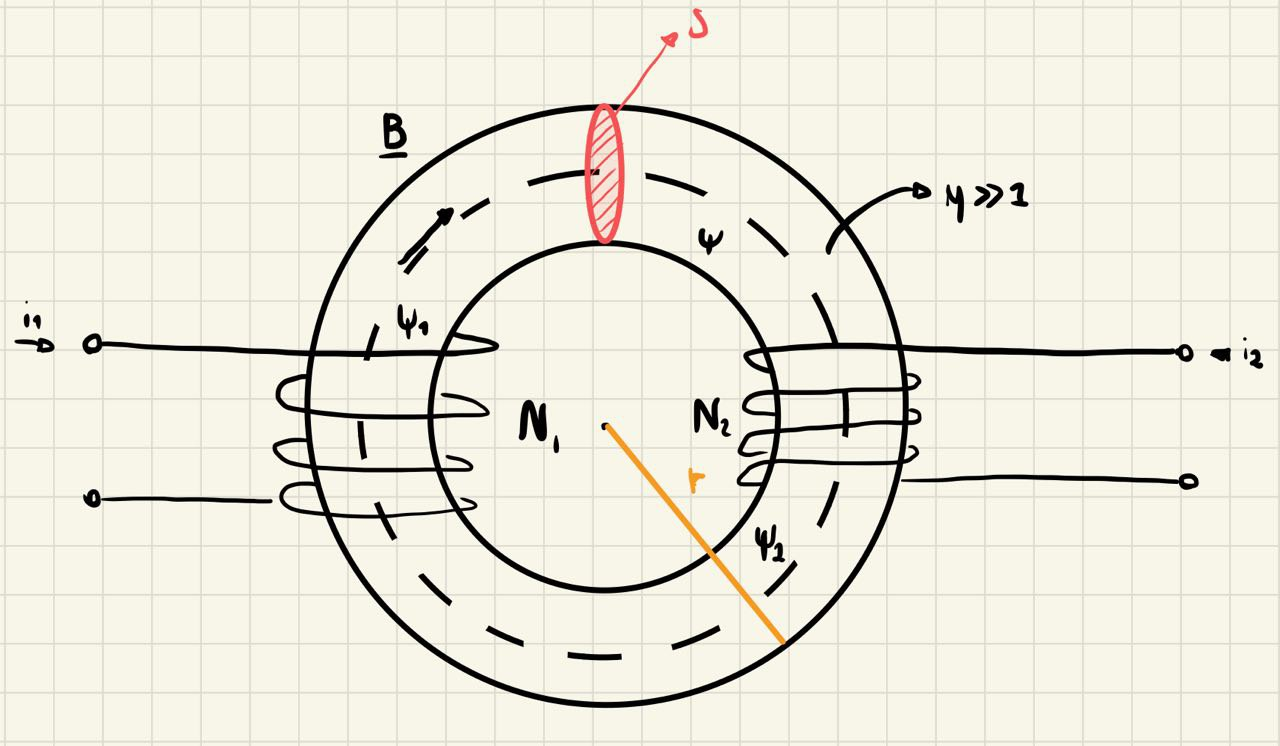 S
B
μ >> 1
ψ
i₁
ψ₁
i₂
N₁
N₂
r
ψ₂